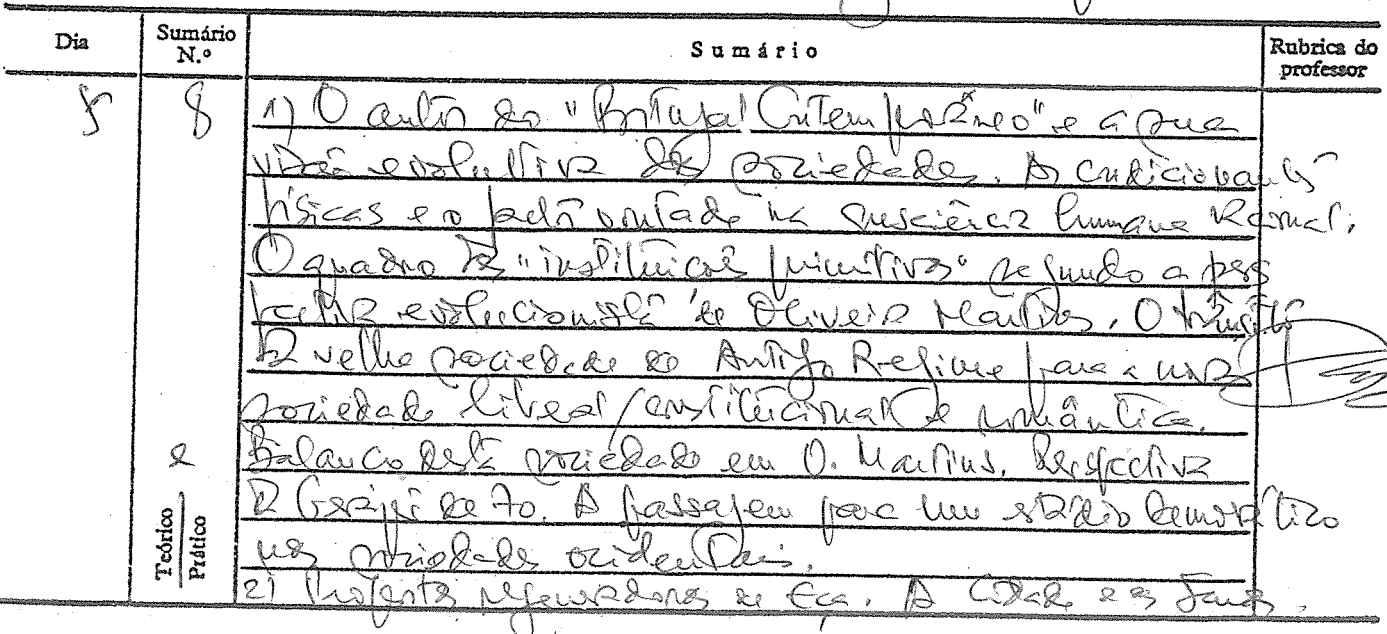 Dia
Sumário N.º
Sumário
Rubrica do professor
8
1) O autor do "Portugal Contemporâneo" e a sua
visão evolutiva das sociedades. As condicionantes
físicas e o vontade na consciência humana Racional.
O quadro das "instituições primitivas" segundo a pers
pectiva evolucionista de Oliveira Martins. O trânsito
da velha sociedade do Antigo Regime para a nova
sociedade liberal constitucional e romântica.
Balanço desta sociedade em O. Martins. Perspectiva
da Geração de 70. A passagem para um estádio democrático
nas sociedades ocidentais.
Teórico
Prático
2) regeneradoras de Eça. A Cidade e as Serras.